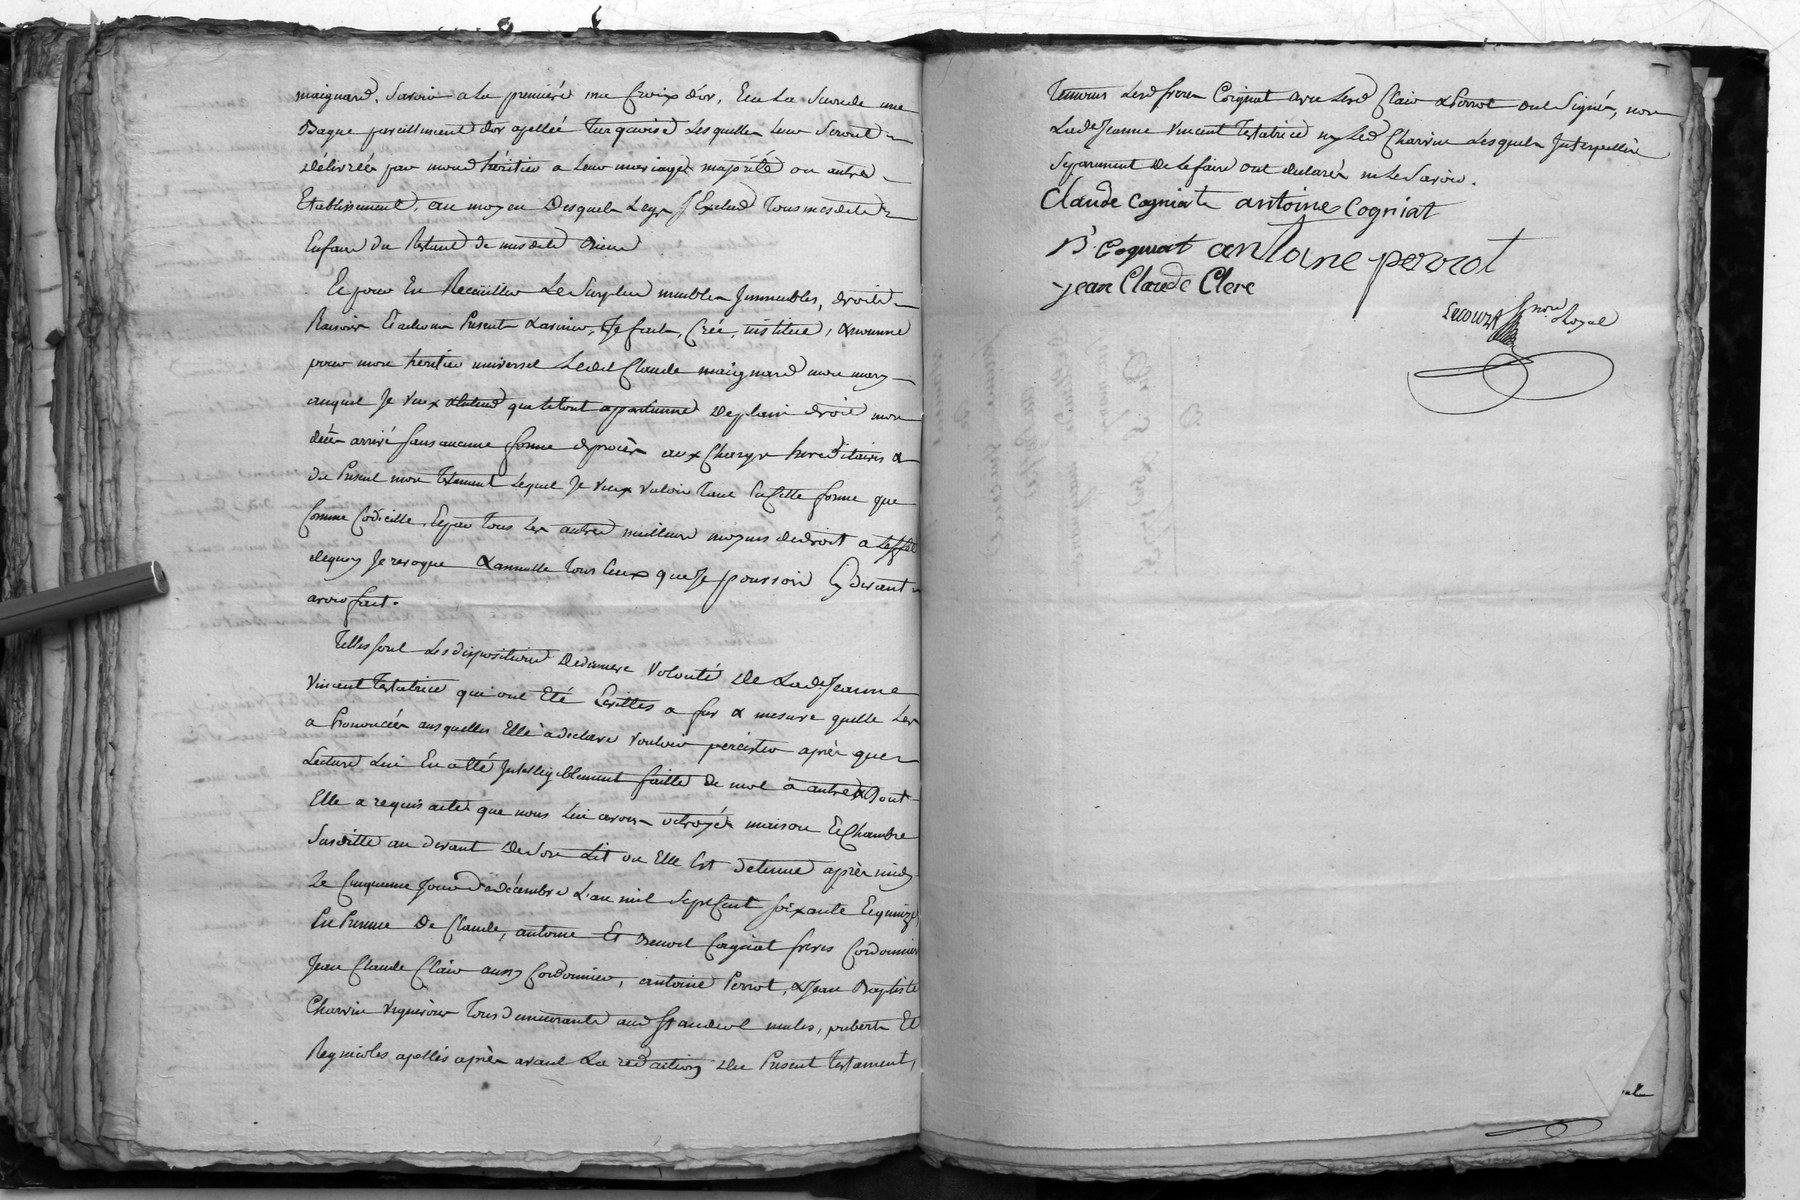 maignard. Savoir a la premiere ma Croix d'or, Et a La Seconde une
Bague pareillement d'or apellée Turquoise Lesquelles Leur Seront
délivrées par mond héritier a Leur mariage majorité ou autre
Etablissement, au moyen Desquels Legs J'Exclud Tous mesdits
Enfans du Restant de mesdits Biens
Et pour En Recueillir Le Surplus meubles Jmmeubles, droits
Raisons Et actions Presents & avenir, Je fait, Crée, institue, & nomme
pour mon héritier universel Ledit Claude maignard mon mary
auquel Je veux & Entend que le tout apartienne De plain droit mon
décés arrivé sans aucune forme de procès aux Charges hereditaires &
du Present mon Testament Lequel Je veux valoir Tant En Cette forme que
Comme Codicille, Et par Tous Les autres meilleurs moyens de droit a L'effet
dequoy Je revoque & annulle Tous Ceux que Je pourrois Cy Devant
avoir fait.
Telles sont Les dispositions De derniere volonté De Lade. Jeanne
Vincent Testatrice qui ont Eté Ecrittes a fur & mesure quelle Les
a Prononcées ausquelles Elle à declaré vouloir percister après que
Lecture Lui En a Eté Jntelligiblement faitte de mot à autre & Dont
Elle a requis acte que nous Lui avons octroyé maison Et Chambre
Susditte au devant De Son Lit ou Elle Est detenue après midy
Le Cinquieme Jour de décembre L'an mil Sept Cent soixante Et quinze
En Presence De Claude, antoine Et Benoit Cogniat freres Cordonniers
Jean Claude Clair aussy Cordonnier, antoine Perrot, & Jean Baptiste
Charvin vignerons Tous demeurants aud St andeol males, puberts Et
Regnicoles apellés après avant La redaction Du Present Testament,
Temoins Lesd freres Cogniat avec Lesd Clair & Perrot ont Signé, non
Lade Jeanne Vincent Testatrice ny Led Charvin Lesquels Jnterpellés
Separement De Le faire ont declarés ne Le Savoir.
Claude Cogniat antoine Cogniat
B. Cogniat antoine perrot
jean Claude Clere
Lecourt nore. Royal